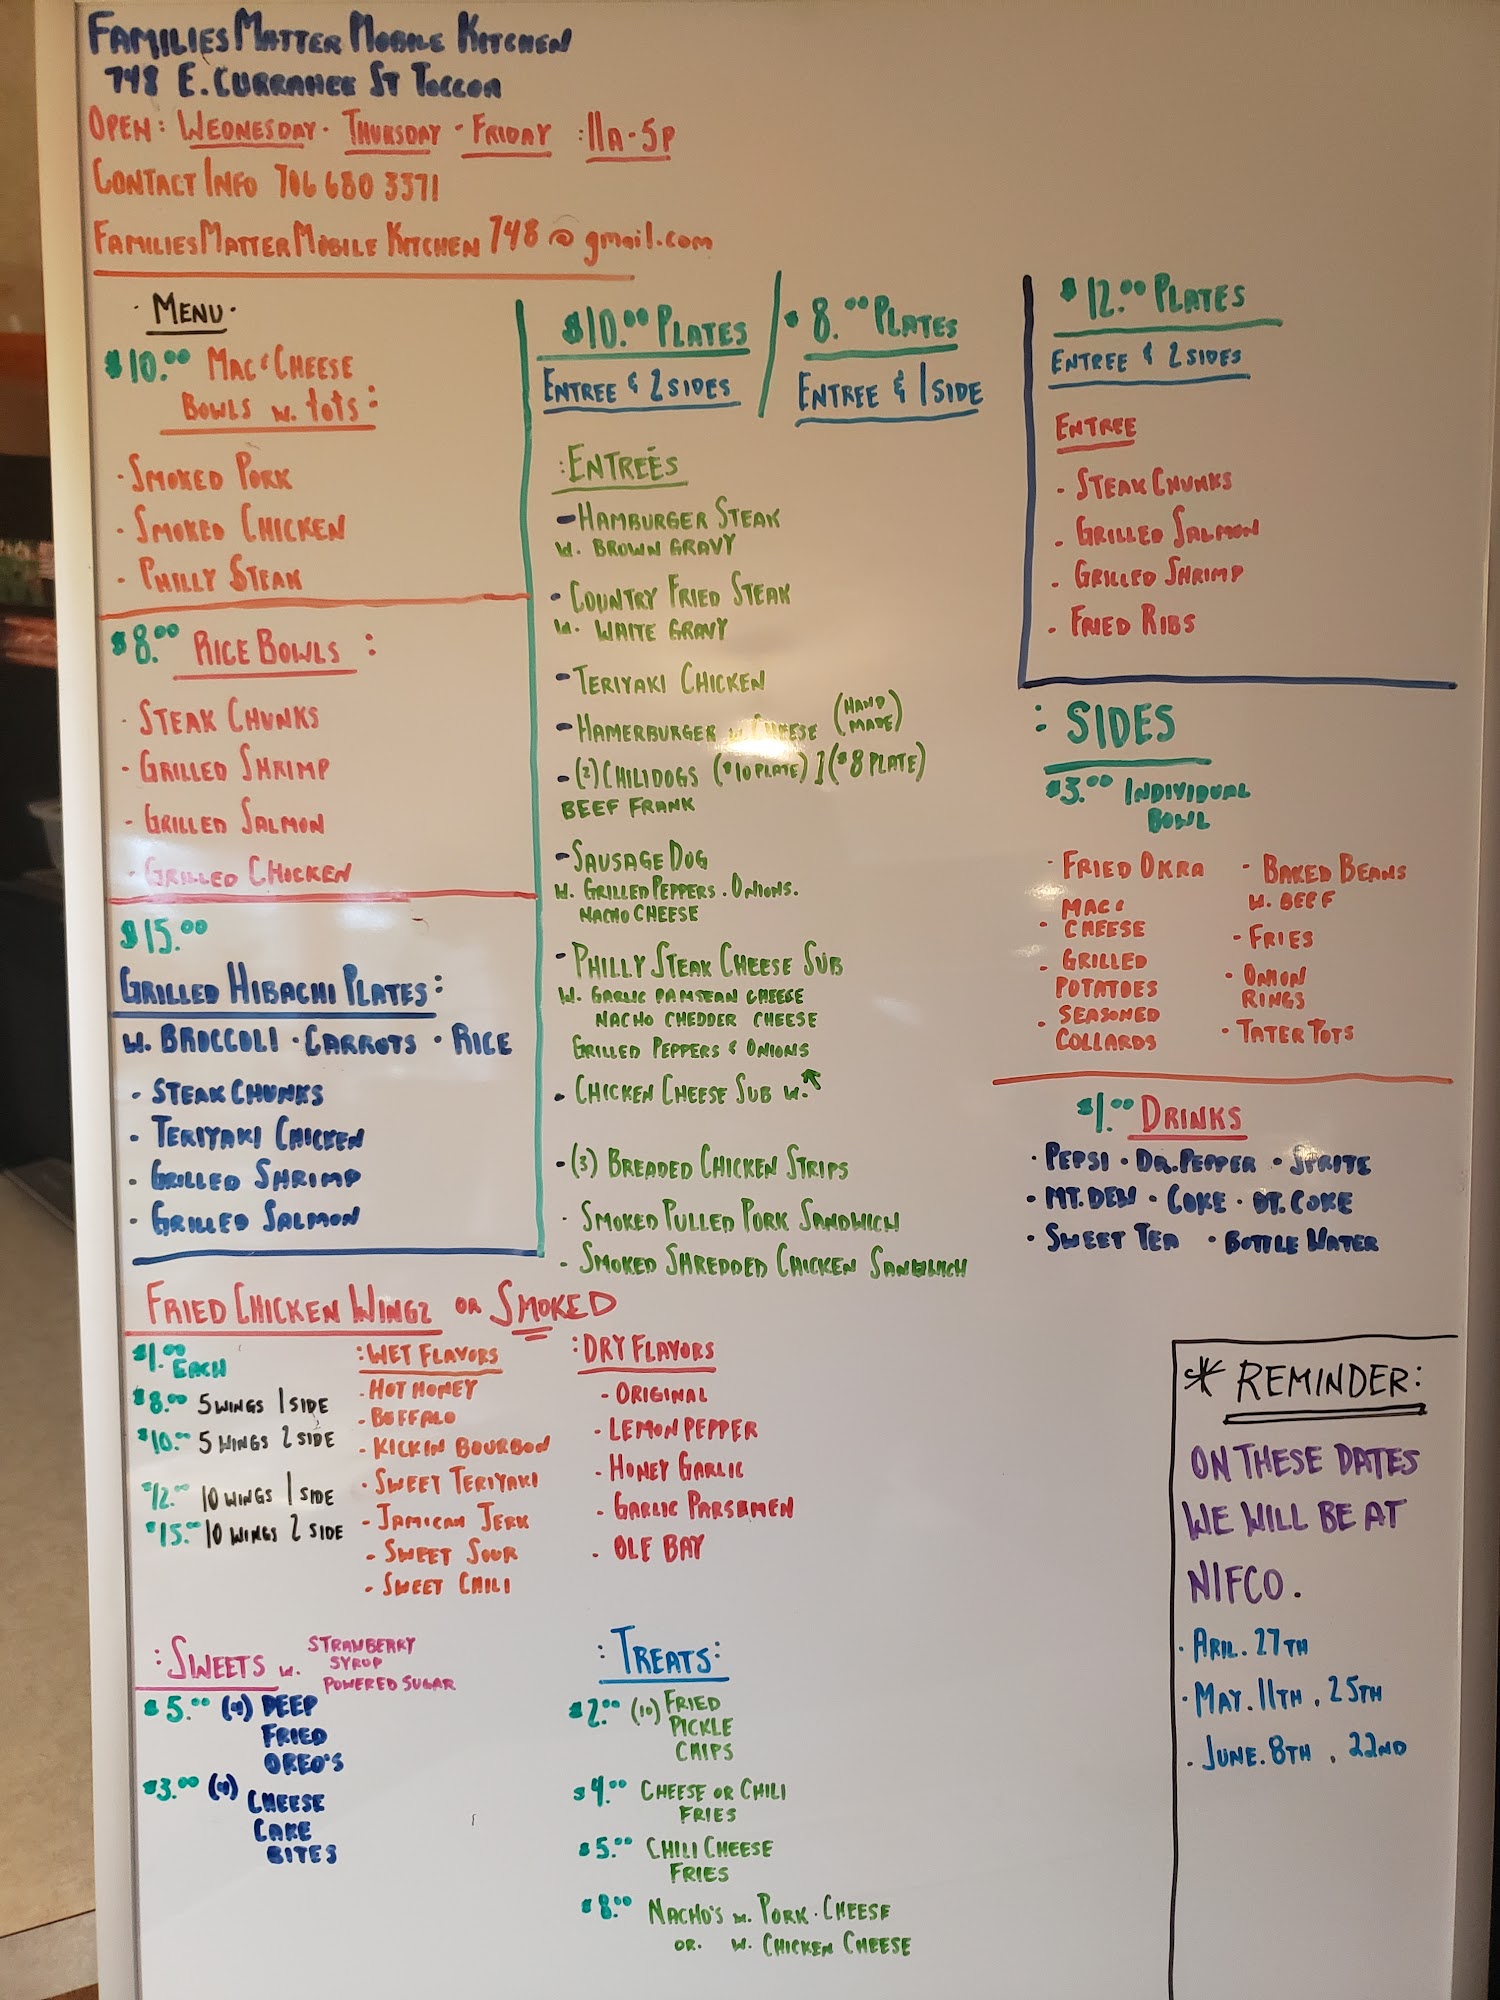 FAMILIES MATTER MOBILE KITCHEN
748 E. CURRAHEE ST TOCCOA
OPEN: WEDNESDAY · THURSDAY · FRIDAY : 11A-5P
CONTACT INFO 706 680 3371
FAMILIESMATTERMOBILE KITCHEN 748 @ gmail.com
· MENU ·
$10.00 MAC & CHEESE
BOWLS w. tots:
· SMOKED PORK
· SMOKED CHICKEN
· PHILLY STEAK
$8.00 RICE BOWLS :
· STEAK CHUNKS
· GRILLED SHRIMP
· GRILLED SALMON
· GRILLED CHICKEN
$15.00
GRILLED HIBACHI PLATES:
W. BROCCOLI · CARROTS · RICE
· STEAK CHUNKS
· TERIYAKI CHICKEN
· GRILLED SHRIMP
· GRILLED SALMON
$10.00 PLATES / $8.00 PLATES
ENTREE & 2 SIDES
ENTREE & 1 SIDE
:ENTREÉS
- HAMBURGER STEAK
W. BROWN GRAVY
· COUNTRY FRIED STEAK
W. WHITE GRAVY
- TERIYAKI CHICKEN
- HAMERBURGER w/ CHEESE (HAND MADE)
- (2) CHILIDOGS ($10 PLATE) ] ($8 PLATE)
BEEF FRANK
- SAUSAGE DOG
W. GRILLED PEPPERS . ONIONS.
NACHO CHEESE
- PHILLY STEAK CHEESE SUB
W. GARLIC PAMSEAN CHEESE
NACHO CHEDDER CHEESE
GRILLED PEPPERS & ONIONS
· CHICKEN CHEESE SUB W. ↑
- (3) BREADED CHICKEN STRIPS
· SMOKED PULLED PORK SANDWICH
· SMOKED SHREDDED CHICKEN SANDWICH
$12.00 PLATES
ENTREE & 2 SIDES
ENTREE
· STEAK CHUNKS
· GRILLED SALMON
· GRILLED SHRIMP
· FRIED RIBS
: SIDES
$3.00 INDIVIDUAL
BOWL
· FRIED OKRA
· MAC &
CHEESE
· GRILLED
POTATOES
· SEASONED
COLLARDS
· BAKED BEANS
W. BEEF
· FRIES
· ONION
RINGS
· TATER TOTS
$1.00 DRINKS
· PEPSI · DR. PEPPER · SPRITE
· MT. DEW · COKE · DT. COKE
· SWEET TEA · BOTTLE WATER
FRIED CHICKEN WINGZ OR SMOKED
$1.00 EACH
$8.00 5 WINGS 1 SIDE
$10.00 5 WINGS 2 SIDE
$12.00 10 WINGS 1 SIDE
$15.00 10 WINGS 2 SIDE
:WET FLAVORS
· HOT HONEY
· BUFFALO
· KICKIN BOURBON
· SWEET TERIYAKI
· JAMICAN JERK
· SWEET SOUR
· SWEET CHILI
:DRY FLAVORS
· ORIGINAL
· LEMON PEPPER
· HONEY GARLIC
· GARLIC PARSEMEN
· OLE BAY
:SWEETS W. STRAWBERRY
SYROP
POWERED SUGAR
$5.00 (4) DEEP
FRIED
OREO'S
$3.00 (4) CHEESE
CAKE
BITES
:TREATS:
$2.00 (10) FRIED
PICKLE
CHIPS
$4.00 CHEESE OR CHILI
FRIES
$5.00 CHILI CHEESE
FRIES
$8.00 NACHO'S w. PORK · CHEESE
OR. W. CHICKEN CHEESE
* REMINDER:
ON THESE DATES
WE WILL BE AT
NIFCO.
· ARIL. 27TH
· MAY. 11TH , 25TH
· JUNE. 8TH , 22ND